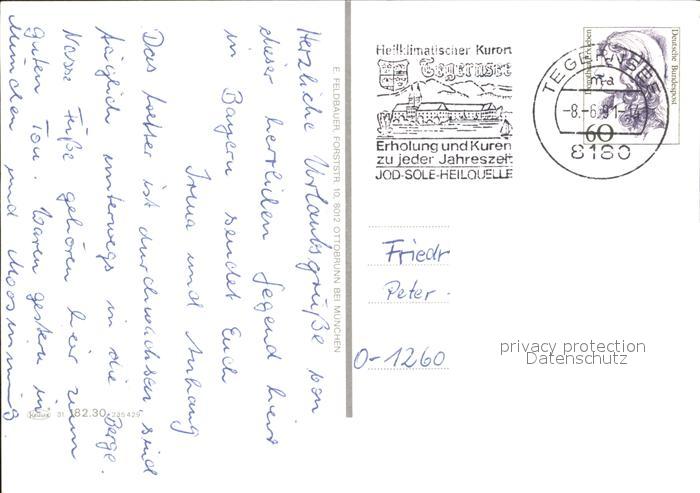 Herzliche Urlaubsgrüße von
dieser herrlichen Gegend hier
in Bayern sendet Euch
Irma und Anhang
Das Wetter ist durchwachsen sind
täglich unterwegs in die Berge.
Nasse Füße gehören hier zum
guten Ton. Waren gestern in
München und
E. FELDBAUER, FORSTSTR. 10, 8012 OTTOBRUNN BEI MÜNCHEN
Krüger 31 82.30 235429
Heilklimatischer Kurort
Tegernsee
Erholung und Kuren
zu jeder Jahreszeit
JOD-SOLE-HEILQUELLE
TEGERNSEE
ma
-8.-6.91
8180
Deutsche Bundespost
60
Friedr
Peter
O-1260
privacy protection
Datenschutz